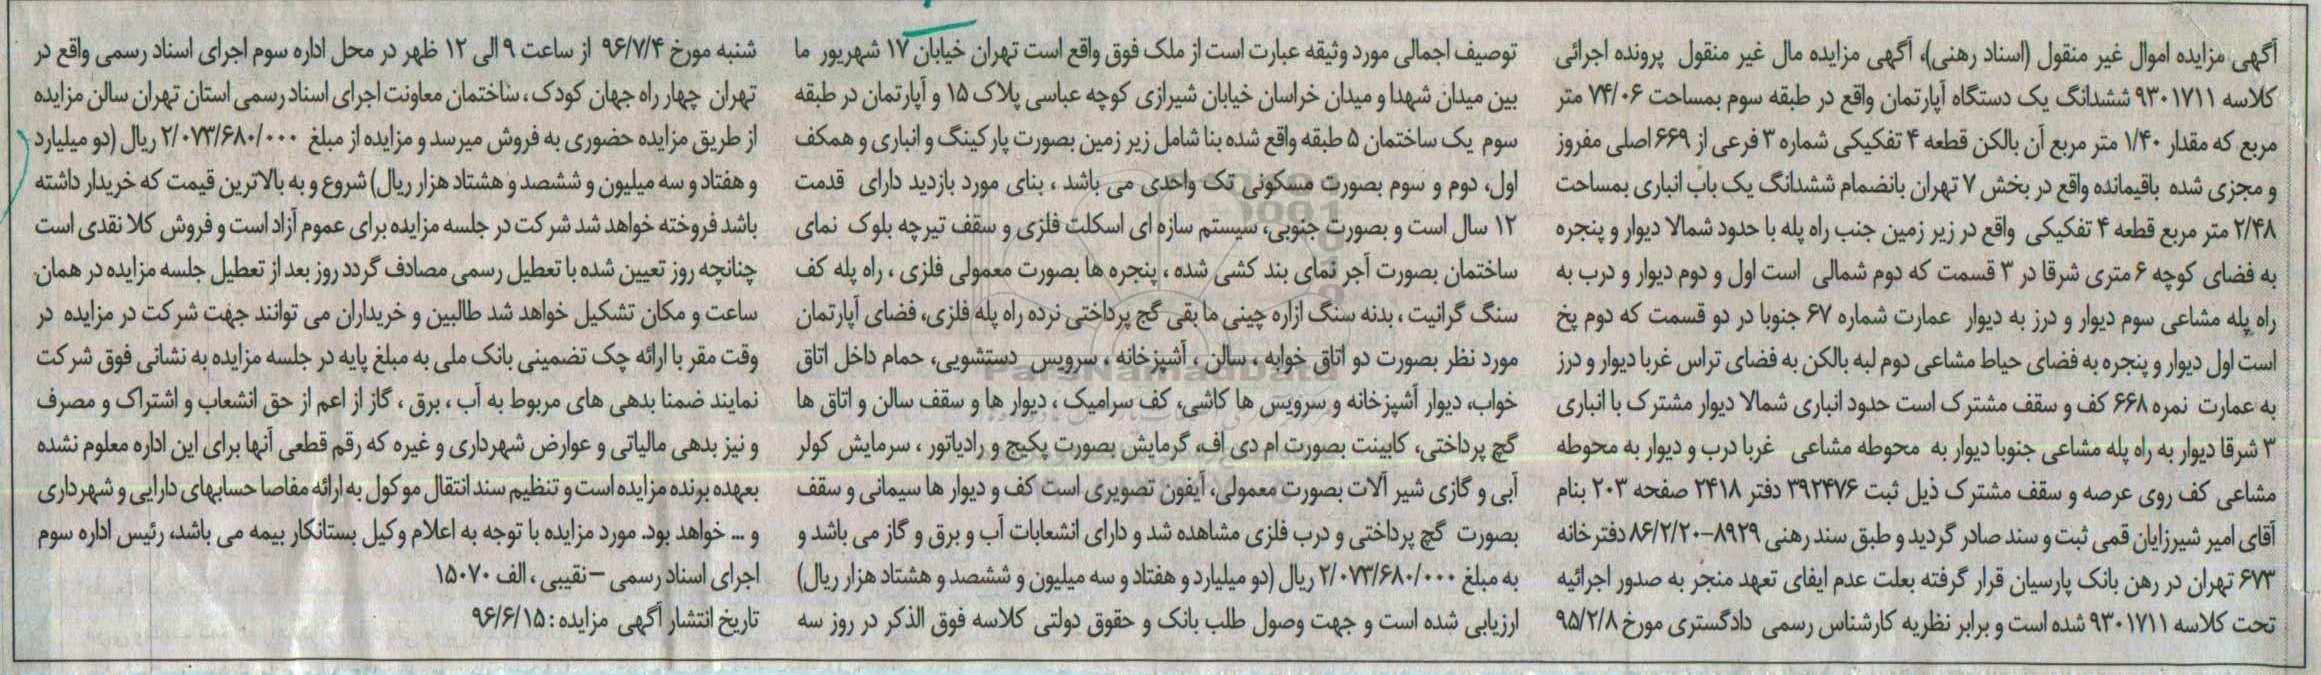 آگهی مزایده اموال غیر منقول (اسناد رهنی)، آگهی مزایده مال غیر منقول پرونده اجرائی
کلاسه ۹۳۰۱۷۱۱ ششدانگ یک دستگاه آپارتمان واقع در طبقه سوم بمساحت ۷۴/۰۶ متر
مربع که مقدار ۱/۴۰ متر مربع آن بالکن قطعه ۴ تفکیکی شماره ۳ فرعی از ۶۶۹ اصلی مفروز
و مجزی شده باقیمانده واقع در بخش ۷ تهران بانضمام ششدانگ یک باب انباری بمساحت
۲/۴۸ متر مربع قطعه ۴ تفکیکی واقع در زیر زمین جنب راه پله با حدود شمالا دیوار و پنجره
به فضای کوچه ۶ متری شرقا در ۳ قسمت که دوم شمالی است اول و دوم دیوار و درب به
راه پله مشاعی سوم دیوار و درز به دیوار عمارت شماره ۶۷ جنوبا در دو قسمت که دوم پخ
است اول دیوار و پنجره به فضای حیاط مشاعی دوم لبه بالکن به فضای تراس غربا دیوار و درز
به عمارت نمره ۶۶۸ کف و سقف مشترک است حدود انباری شمالا دیوار مشترک با انباری
۳ شرقا دیوار به راه پله مشاعی جنوبا دیوار به محوطه مشاعی غربا درب و دیوار به محوطه
مشاعی کف روی عرصه و سقف مشترک ذیل ثبت ۳۹۲۴۷۶ دفتر ۲۴۱۸ صفحه ۲۰۳ بنام
آقای امیر شیرزایان قمی ثبت و سند صادر گردید و طبق سند رهنی ۸۹۲۹–۸۶/۲/۲۰ دفترخانه
۶۷۳ تهران در رهن بانک پارسیان قرار گرفته بعلت عدم ایفای تعهد منجر به صدور اجرائیه
تحت کلاسه ۹۳۰۱۷۱۱ شده است و برابر نظریه کارشناس رسمی دادگستری مورخ ۹۵/۲/۸
توصیف اجمالی مورد وثیقه عبارت است از ملک فوق واقع است تهران خیابان ۱۷ شهریور ما
بین میدان شهدا و میدان خراسان خیابان شیرازی کوچه عباسی پلاک ۱۵ و آپارتمان در طبقه
سوم یک ساختمان ۵ طبقه واقع شده بنا شامل زیر زمین بصورت پارکینگ و انباری و همکف
اول، دوم و سوم بصورت مسکونی تک واحدی می باشد ، بنای مورد بازدید دارای قدمت
۱۲ سال است و بصورت جنوبی، سیستم سازه ای اسکلت فلزی و سقف تیرچه بلوک نمای
ساختمان بصورت آجر نمای بند کشی شده ، پنجره ها بصورت معمولی فلزی ، راه پله کف
سنگ گرانیت ، بدنه سنگ ازاره چینی مابقی گچ پرداختی نرده راه پله فلزی، فضای آپارتمان
مورد نظر بصورت دو اتاق خوابه ، سالن ، آشپزخانه ، سرویس دستشویی، حمام داخل اتاق
خواب، دیوار آشپزخانه و سرویس ها کاشی، کف سرامیک ، دیوار ها و سقف سالن و اتاق ها
گچ پرداختی، کابینت بصورت ام دی اف، گرمایش بصورت پکیج و رادیاتور ، سرمایش کولر
آبی و گازی شیر آلات بصورت معمولی، آیفون تصویری است کف و دیوار ها سیمانی و سقف
بصورت گچ پرداختی و درب فلزی مشاهده شد و دارای انشعابات آب و برق و گاز می باشد و
به مبلغ ۲/۰۷۳/۶۸۰/۰۰۰ ریال (دو میلیارد و هفتاد و سه میلیون و ششصد و هشتاد هزار ریال)
ارزیابی شده است و جهت وصول طلب بانک و حقوق دولتی کلاسه فوق الذکر در روز سه
شنبه مورخ ۹۶/۷/۴ از ساعت ۹ الی ۱۲ ظهر در محل اداره سوم اجرای اسناد رسمی واقع در
تهران چهار راه جهان کودک ، ساختمان معاونت اجرای اسناد رسمی استان تهران سالن مزایده
از طریق مزایده حضوری به فروش میرسد و مزایده از مبلغ ۲/۰۷۳/۶۸۰/۰۰۰ ریال (دو میلیارد
و هفتاد و سه میلیون و ششصد و هشتاد هزار ریال) شروع و به بالاترین قیمت که خریدار داشته
باشد فروخته خواهد شد شرکت در جلسه مزایده برای عموم آزاد است و فروش کلا نقدی است
چنانچه روز تعیین شده با تعطیل رسمی مصادف گردد روز بعد از تعطیل جلسه مزایده در همان
ساعت و مکان تشکیل خواهد شد طالبین و خریداران می توانند جهت شرکت در مزایده در
وقت مقر با ارائه چک تضمینی بانک ملی به مبلغ پایه در جلسه مزایده به نشانی فوق شرکت
نمایند ضمنا بدهی های مربوط به آب ، برق ، گاز از اعم از حق انشعاب و اشتراک و مصرف
و نیز بدهی مالیاتی و عوارض شهرداری و غیره که رقم قطعی آنها برای این اداره معلوم نشده
بعهده برنده مزایده است و تنظیم سند انتقال موکول به ارائه مفاصا حسابهای دارایی و شهرداری
و ... خواهد بود. مورد مزایده با توجه به اعلام وکیل بستانکار بیمه می باشد، رئیس اداره سوم
اجرای اسناد رسمی –نقیبی ، الف ۱۵۰۷۰
تاریخ انتشار آگهی مزایده : ۹۶/۶/۱۵
ParsNamadData